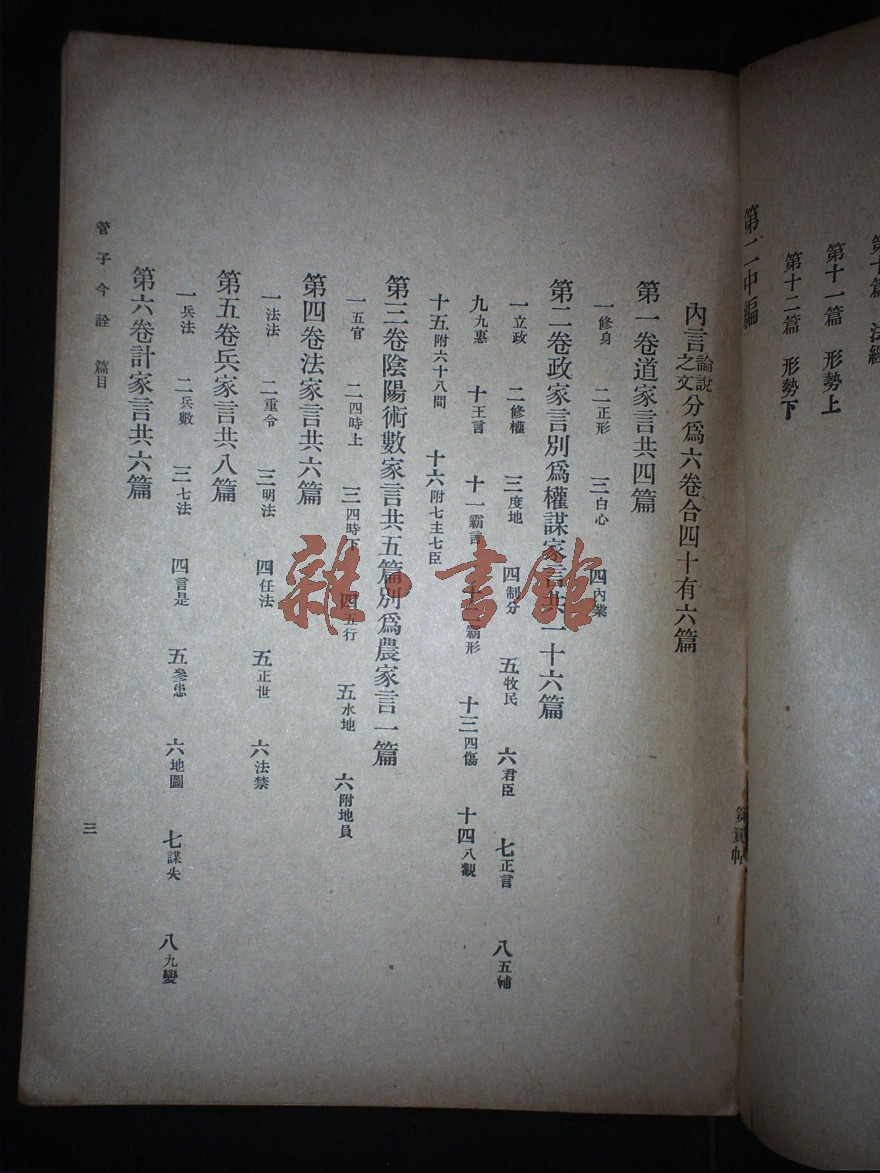 第十一篇 形勢上
第十二篇 形勢下
第二中編
內言論說之文分爲六卷合四十有六篇
第一卷道家言共四篇
一修身 二正形 三白心 四內業
第二卷政家言別爲權謀家言共一十六篇
一立政 二修權 三度地 四制分 五牧民 六君臣 七正言 八五輔
九九惠 十王言 十一霸言 十二霸形 十三四傷 十四八觀
十五附六十八問 十六附七主七臣
第三卷陰陽術數家言共五篇別爲農家言一篇
一五官 二四時上 三四時下 四五行 五水地 六附地員
第四卷法家言共六篇
一法法 二重令 三明法 四任法 五正世 六法禁
第五卷兵家言共八篇
一兵法 二兵數 三七法 四言是 五參患 六地圖 七謀失 八九變
第六卷計家言共六篇
管子今詮 篇目
三
雜·書館